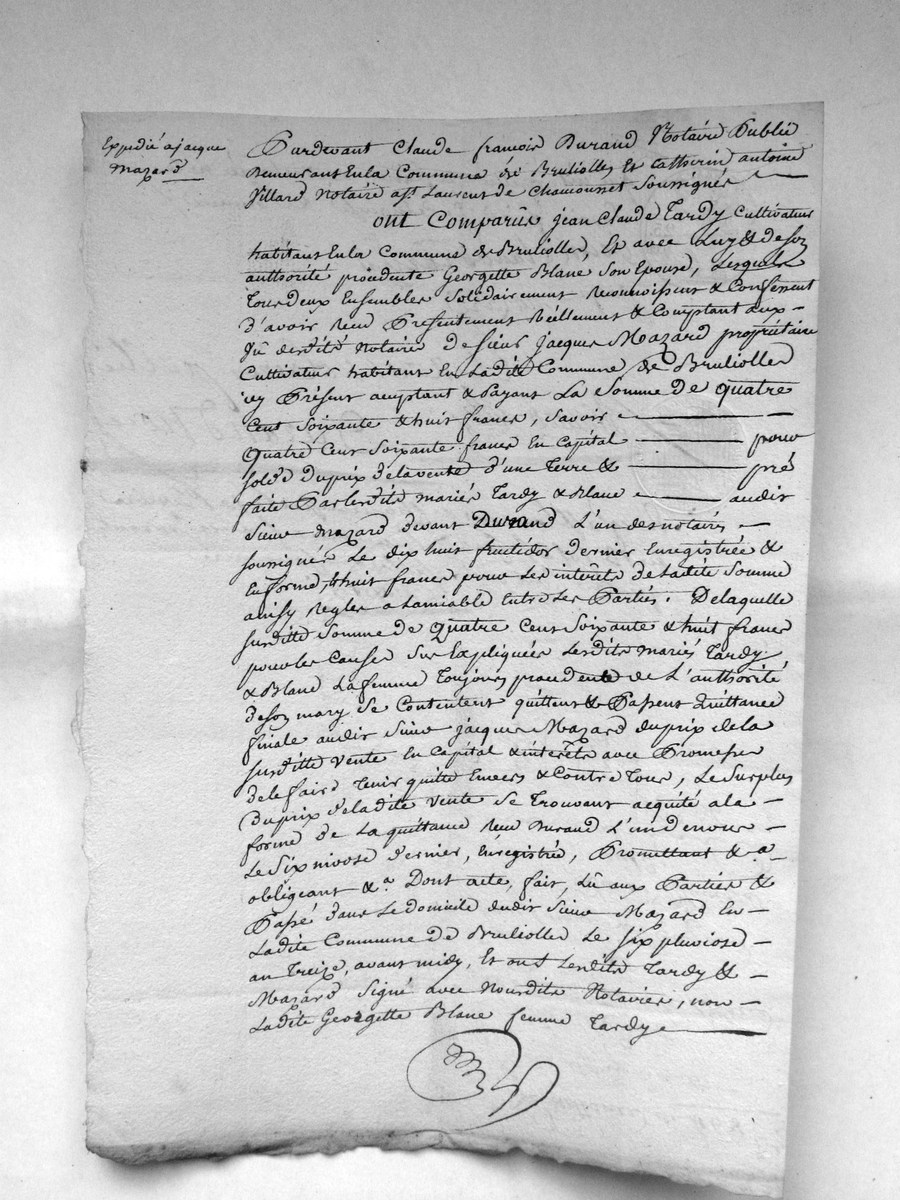 Expedié a jacque
Mazard
Pardevant Claude francois Durand Notaire Public
Demeurant En la Commune de Bruliolles Et Catherin antoine
Villard Notaire a St. Laurent de Chamousset Soussignés
ont Comparûs jean Claude Tardy Cultivateur
habitant En la Commune de Bruliolles, Et avec Luy & de Son
authorité procédente Georgette Blanc Son Epouse, Lesquels
Tous deux Ensembles Solidairement Reconnoissent & Confessent
d'avoir Reçu Présentement Réellement & Comptant aux
du desdits Notaires de Sieur jacques Mazard propriétaire
Cultivateur habitant En Ladite Commune de Bruliolles
icy Présent acceptant & Payant La Somme de quatre
Cent Soixante & huit francs, Savoir
quatre Cent Soixante francs En Capital pour
solde du prix de la vente d'une Terre & pré
faite Par lesdits mariés Tardy & Blanc audit
Sieur Mazard devant Durand L'un des notaires
soussignés Le dix huit fructidor dernier Enregistrée &
En forme, & huit francs pour Les intérêts de Ladite Somme
ainsy Réglés a Lamiable Entre Les Parties. De laquelle
susditte Somme de quatre Cent Soixante & huit francs
pour les Causes Sus Expliquées Lesdits mariés Tardy
& Blanc La femme Toujours procédente de L'authorité
de Son mary Se Contentent quittent & Passent Quittance
finale audit Sieur jacques Mazard du prix de la
susditte Vente En Capital & intérêts avec Promesse
de le faire Tenir quitte Envers & Contre Tous, Le Surplus
du prix de ladite Vente Se Trouvant acquité a la
forme de La quittance Reçu Durand L'un de nous
Le Six nivose dernier, Enregistré, Promettant &a.
obligeant &a. Dont acte, fait, Lû aux Parties &
Passé dans Le domicile dudit Sieur Mazard En
Ladite Commune de Bruliolles Le Six pluviose
an Treize, avant midy, Et ont Lesdits Tardy &
Mazard Signé avec Nousdits Notaires, non
Ladite Georgette Blanc femme Tardy